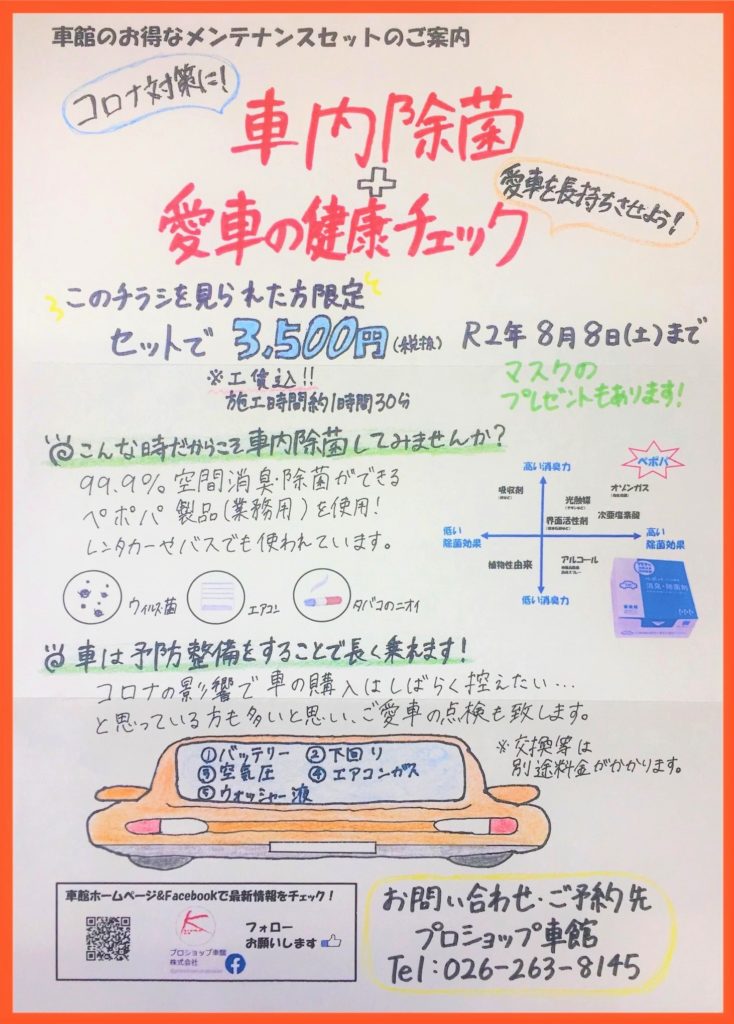 車館のお得なメンテナンスセットのご案内
コロナ対策に!
車内除菌
+
愛車の健康チェック
愛車を長持ちさせよう!
このチラシを見られた方限定
セットで 3,500円(税抜) R2年 8月8日(土)まで
※工賃込!!
施工時間約1時間30分
マスクの
プレゼントもあります!
こんな時だからこそ車内除菌してみませんか?
99.9% 空間消臭・除菌ができる
ペポパ 製品(業務用)を使用!
レンタカーやバスでも使われています。
ウィルス菌
エアコン
タバコのニオイ
高い消臭力
ペポパ
吸収剤
オゾンガス
光触媒
次亜塩素酸
界面活性剤
低い
除菌効果
高い
除菌効果
植物性由来
アルコール
低い消臭力
消臭・除菌剤
車は予防整備をすることで長く乗れます!
コロナの影響で車の購入はしばらく控えたい…
と思っている方も多いと思い、ご愛車の点検も致します。
①バッテリー ②下回り
③空気圧 ④エアコンガス
⑤ウォッシャー液
※交換等は
別途料金がかかります。
車館ホームページ&Facebookで最新情報をチェック!
プロショップ車館
株式会社
フォロー
お願いします
お問い合わせ・ご予約先
プロショップ車館
Tel:026-263-8145